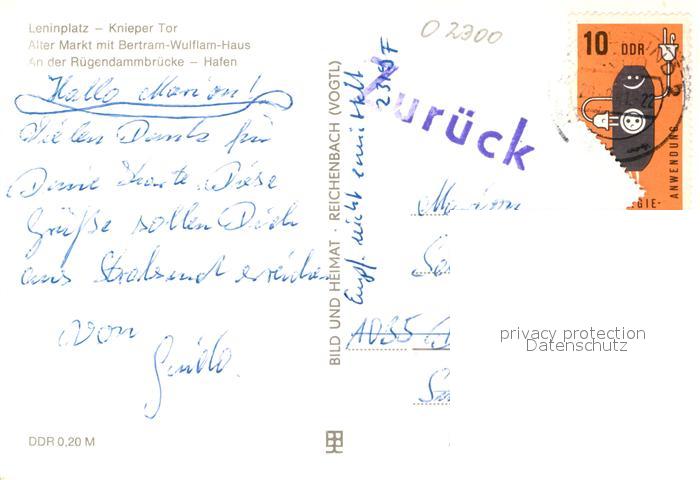 Leninplatz – Knieper Tor
Alter Markt mit Bertram-Wulflam-Haus
An der Rügendammbrücke – Hafen
Hallo Marion!
Vielen Dank für
Deine Karte. Diese
Grüße sollen Dich
aus Stralsund erreichen
von
Guido.
DDR 0,20 M
BILD UND HEIMAT · REICHENBACH (VOGTL)
Empf. nicht ermittelt
Zurück
02300
10 DDR
GIE-
ANWENDUNG
Marion
privacy protection
Datenschutz